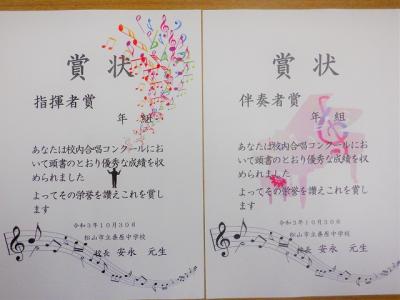 賞状
指揮者賞
年 組
あなたは校内合唱コンクールにお
いて頭書のとおり優秀な成績を収
められました
よってその栄誉を讃えこれを賞し
ます
令和3年10月30日
松山市立桑原中学校
校長 安永 元生
賞状
伴奏者賞
年 組
あなたは校内合唱コンクールにお
いて頭書のとおり優秀な成績を収
められました
よってその栄誉を讃えこれを賞し
ます
令和3年10月30日
松山市立桑原中学校
校長 安永 元生